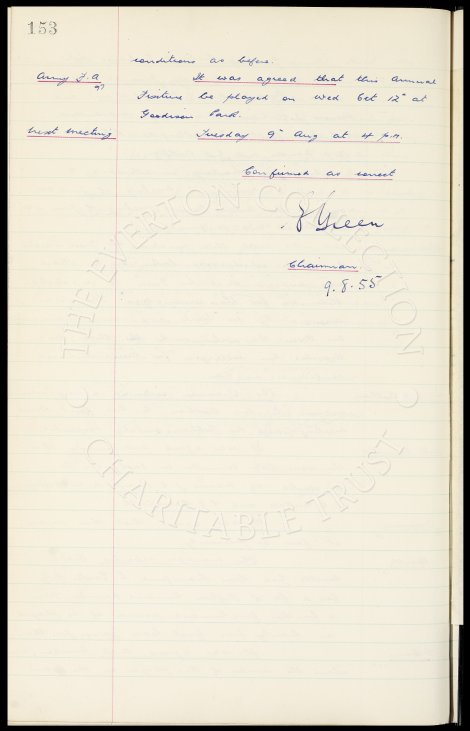 153
conditions as before.
Army F.A. It was agreed that this Annual
Fixture be played on Wed Oct 12th at
Goodison Park.
Next Meeting Tuesday 9th Aug at 4 p.m.
Confirmed as correct
Green
Chairman
9.8.55
THE EVERTON COLLECTION
CHARITABLE TRUST